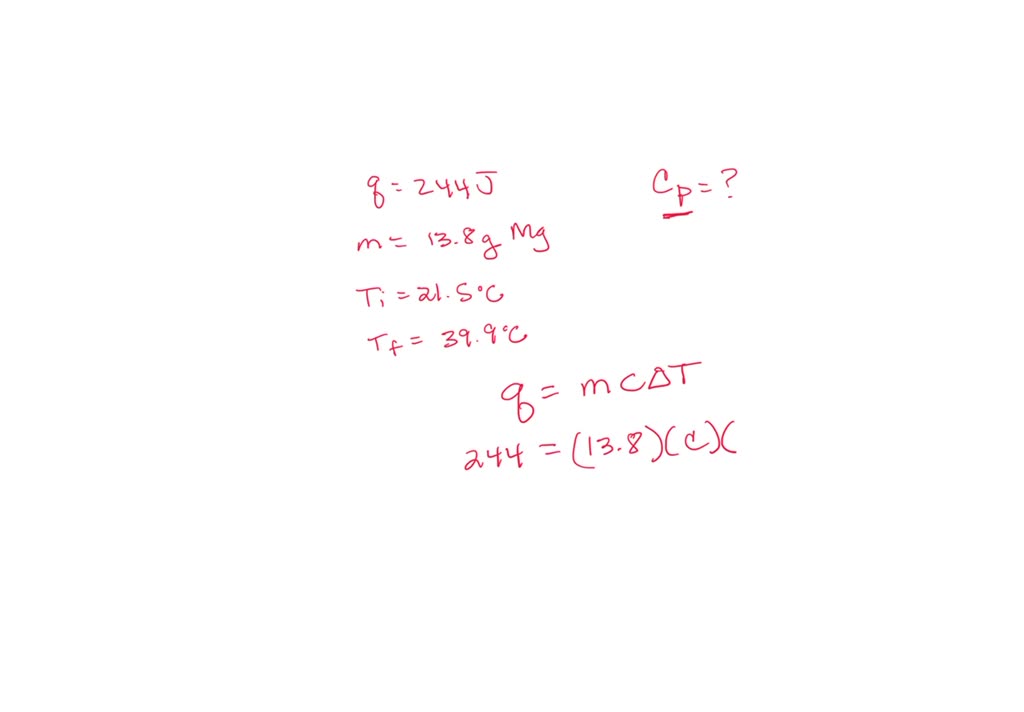 q = 244J
Cp = ?
m = 13.8g Mg
Ti = 21.5°C
Tf = 39.9°C
q = mCΔT
244 = (13.8)(C)(